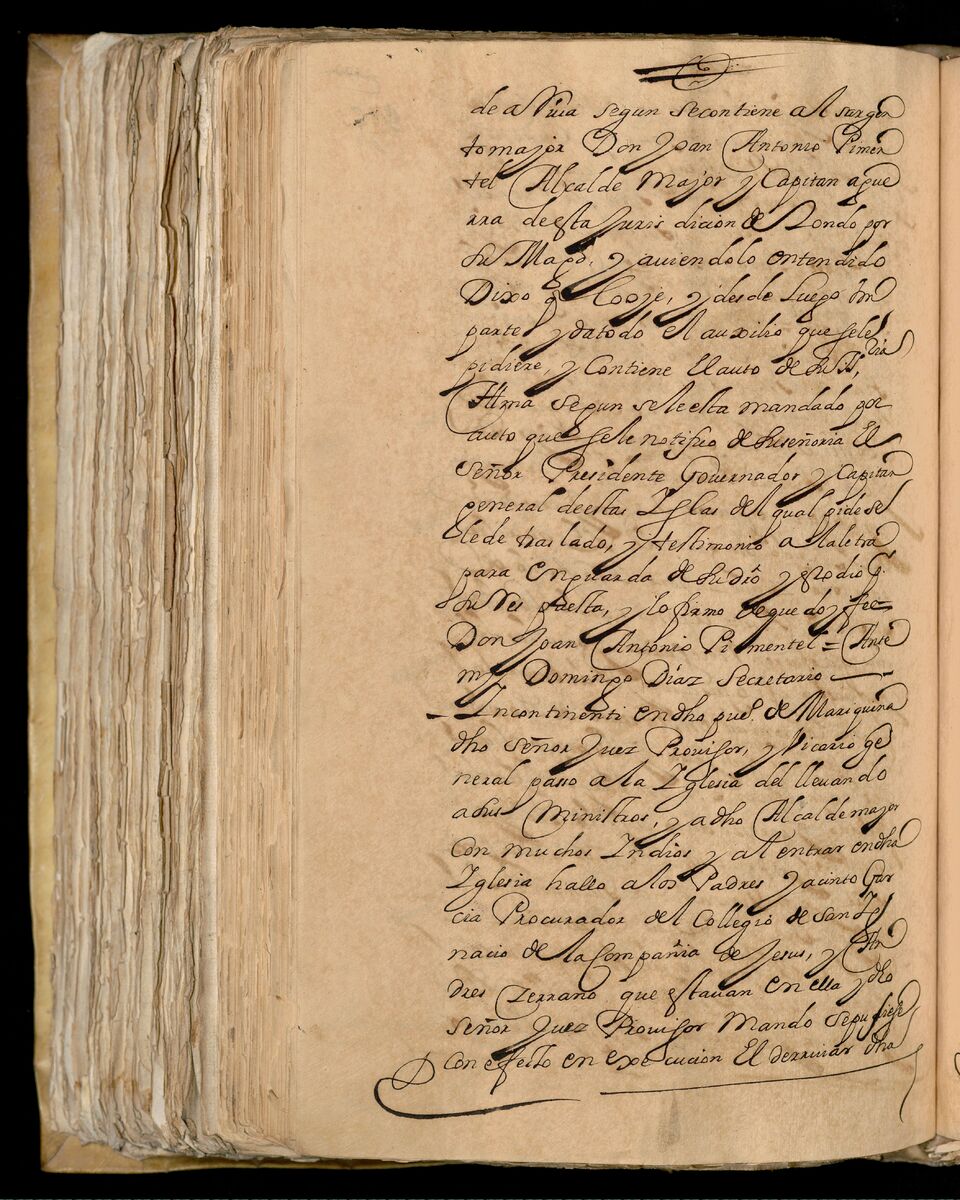 de arriua segun secontiene al sargen
tomajor Don Joan Antonio Pimen
tel Alcalde Major y Capitan a gue
rra de esta Juris dicion de Tondo por
su Magd. y auiendolo entendido
Dixo q lo oje, y desde luego im
parte y da todo el auxilio que sele
pidiere, y Contiene El auto de su
segun sele esta mandado por
auto que sele notifico de su señoria El
señor Presidente Gouernador y Capitan
general de estas Islas del qual pide se
le de traslado, y testimonio a la letra
para en guarda de su dro y esto dio
su Respuesta, y lo firmo de que doy fee=
Don Joan Antonio Pimentel = Ante
my Domingo Díaz Secretario
Incontinenti en dho pueo. de Mariquina
dho señor Juez Prouisor, y Vicario ge
neral passo a la Iglesia del lleuando
a sus Ministros, y a dho Alcalde major
con muchos Indios y al entrar en dha
Iglesia hallo a los Padres Jacinto Gar
cia Procurador del Collegio de san Ig
nacio de la Compañia de Jesus, y An
dres Serrano que estauan en ella y dho
señor Juez Prouisor Mando se pusiese
con efecto en exe cucion El derriuar dha